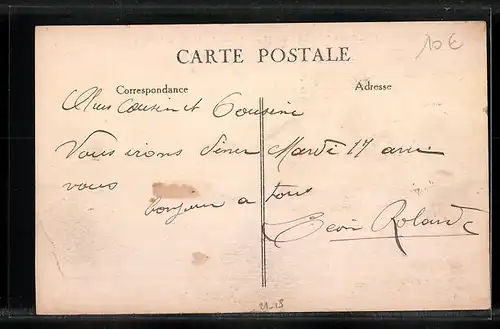 10€
CARTE POSTALE
Correspondance
Adresse
Cousin et Cousine
Vous irons diner Mardi 17 avec
vous
bonjour a tous
Rolande